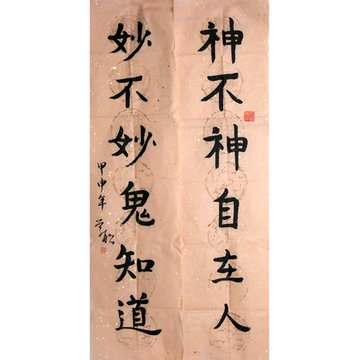 神不神自在人
妙不妙鬼知道
甲申年